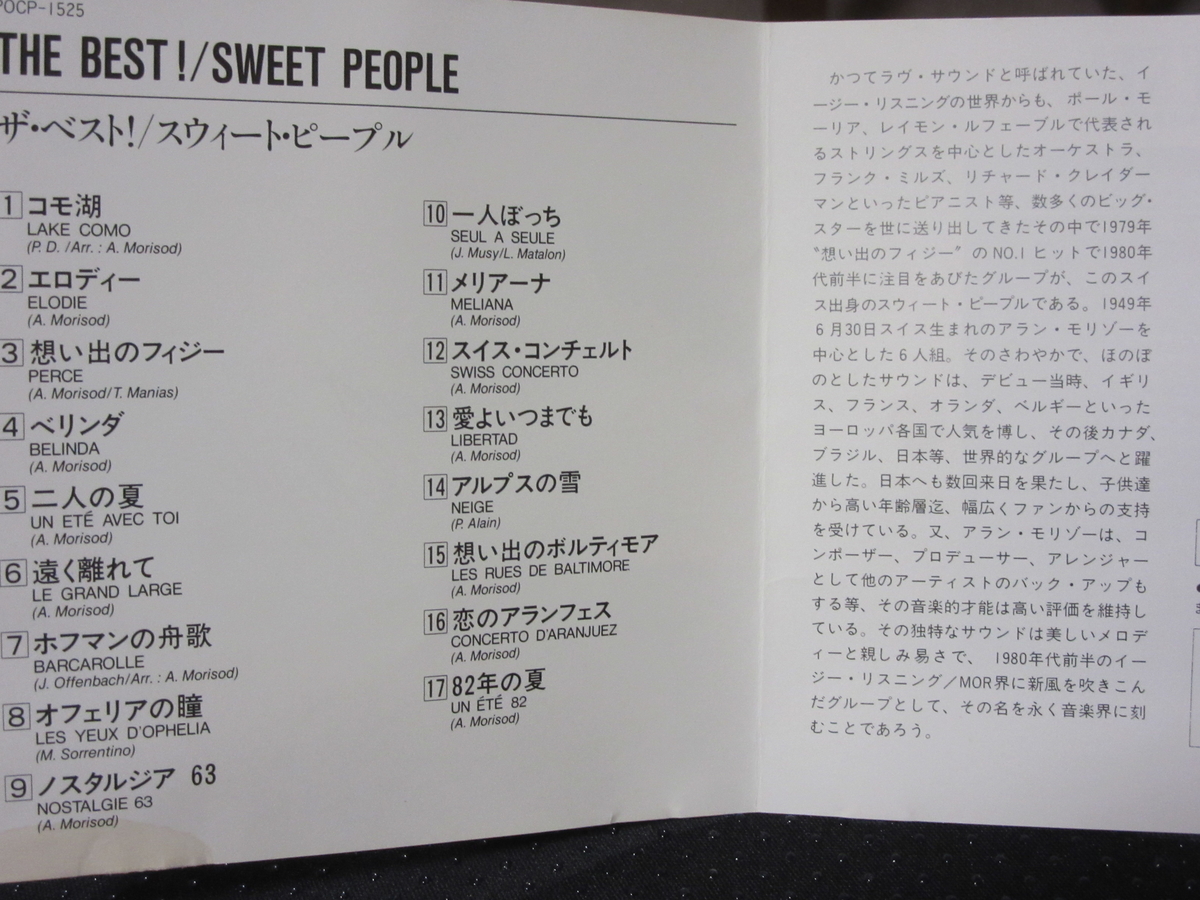 POCP-1525
THE BEST!/SWEET PEOPLE
ザ・ベスト!/スウィート・ピープル
1 コモ湖
LAKE COMO
(P. D. /Arr. : A. Morisod)
2 エロディー
ELODIE
(A. Morisod)
3 想い出のフィジー
PERCE
(A. Morisod/T. Manias)
4 ベリンダ
BELINDA
(A. Morisod)
5 二人の夏
UN ETÉ AVEC TOI
(A. Morisod)
6 遠く離れて
LE GRAND LARGE
(A. Morisod)
7 ホフマンの舟歌
BARCAROLLE
(J. Offenbach/Arr. : A. Morisod)
8 オフェリアの瞳
LES YEUX D'OPHELIA
(M. Sorrentino)
9 ノスタルジア 63
NOSTALGIE 63
(A. Morisod)
10 一人ぼっち
SEUL A SEULE
(J. Musy/L. Matalon)
11 メリアーナ
MELIANA
(A. Morisod)
12 スイス・コンチェルト
SWISS CONCERTO
(A. Morisod)
13 愛よいつまでも
LIBERTAD
(A. Morisod)
14 アルプスの雪
NEIGE
(P. Alain)
15 想い出のボルティモア
LES RUES DE BALTIMORE
(A. Morisod)
16 恋のアランフェス
CONCERTO D'ARANJUEZ
(A. Morisod)
17 82年の夏
UN ÉTÉ 82
(A. Morisod)
かつてラヴ・サウンドと呼ばれていた、イ
ージー・リスニングの世界からも、ポール・モ
ーリア、レイモン・ルフェーブルで代表され
るストリングスを中心としたオーケストラ、
フランク・ミルズ、リチャード・クレイダー
マンといったピアニスト等、数多くのビッグ・
スターを世に送り出してきたその中で1979年
〝想い出のフィジー〞のNO.1ヒットで1980年
代前半に注目をあびたグループが、このスイ
ス出身のスウィート・ピープルである。1949年
6月30日スイス生まれのアラン・モリゾーを
中心とした6人組。そのさわやかで、ほのぼ
のとしたサウンドは、デビュー当時、イギリ
ス、フランス、オランダ、ベルギーといった
ヨーロッパ各国で人気を博し、その後カナダ、
ブラジル、日本等、世界的なグループへと躍
進した。日本へも数回来日を果たし、子供達
から高い年齢層迄、幅広くファンからの支持
を受けている。又、アラン・モリゾーは、コ
ンポーザー、プロデューサー、アレンジャー
として他のアーティストのバック・アップも
する等、その音楽的才能は高い評価を維持し
ている。その独特なサウンドは美しいメロデ
ィーと親しみ易さで、1980年代前半のイー
ジー・リスニング/MOR界に新風を吹きこん
だグループとして、その名を永く音楽界に刻
むことであろう。